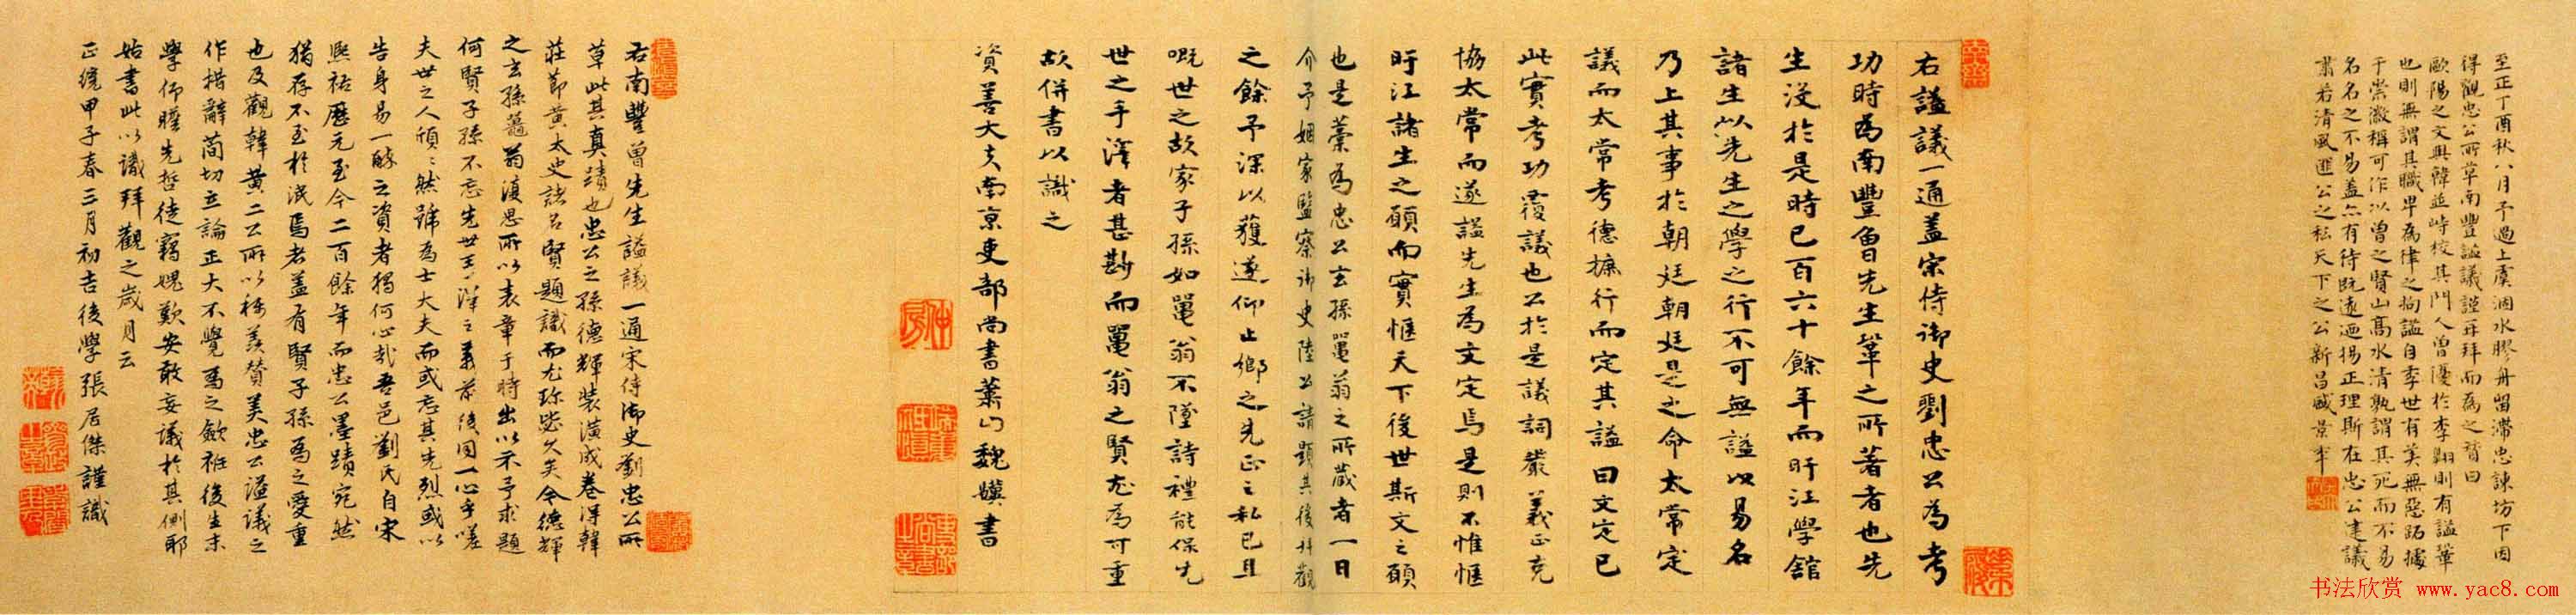 至正丁酉秋八月予過上虞涸水膠舟留滯忠諫坊下因
得觀忠公所草南豐謚議謹再拜而為之贊曰
歐陽之文與韓並峙校其門人曾優於李翱則有謚鞏
也則無謂其職卑為律之拘謚自李世有美無惡跖據
于崇徽稱可作以曾之賢山高水清孰謂其死而不易
名名之不易蓋亦有待既遠迺揚正理斯在忠公建議
肅若清風匪公之私天下之公新昌
右謚議一通盖宋侍御史劉忠公為考
功時為南豐曾先生鞏之所著者也先
生沒於是時已百六十餘年而盱江學館
諸生以先生之學之行不可無謚以易名
乃上其事於朝廷朝廷是之命太常定
議而太常考德摭行而定其謚曰文定已
此實考功覆議也公於是議詞嚴義正克
協太常而遂謚先生為文定焉是則不惟愜
盱江諸生之願而實愜天下後世斯文之願
也是藁為忠公玄孫罍翁之所藏者一日
介予姻家監察御史陸公請題其後幷觀
之餘予深以獲遂仰止鄉之先正之私已且
嘅世之故家子孫如罍翁不墜詩禮能保先
世之手澤者甚尠而罍翁之賢尤為可重
故併書以識之
資善大夫南京吏部尚書蕭山魏驥書
右南豐曾先生謚議一通宋侍御史劉忠公所
草此其真蹟也忠公之孫德輝裝潢成卷得韓
莊節黃太史諸名賢題識而尤珍毖久矣今德輝
之玄孫罍翁復思所以表章于時出以示予求題
何賢子孫不忘先世手澤之義前後同一心乎嗟
夫世之人頎頎然號為士大夫而或忘其先烈或以
告身易一醉之資者獨何心哉吾邑劉氏自宋
熙祐歷元至今二百餘年而忠公墨蹟宛然
猶存不至於泯焉者盖有賢子孫為之愛重
也及觀韓黃二公所以稱羨贊美忠公謚議之
作措辭簡切立論正大不覺為之斂衽後生末
學仰瞻先哲徒竊媿歎安敢妄議於其側耶
姑書此以識拜觀之歲月云
正統甲子春三月初吉後學張居傑謹識
书法欣赏 www.yac8.com